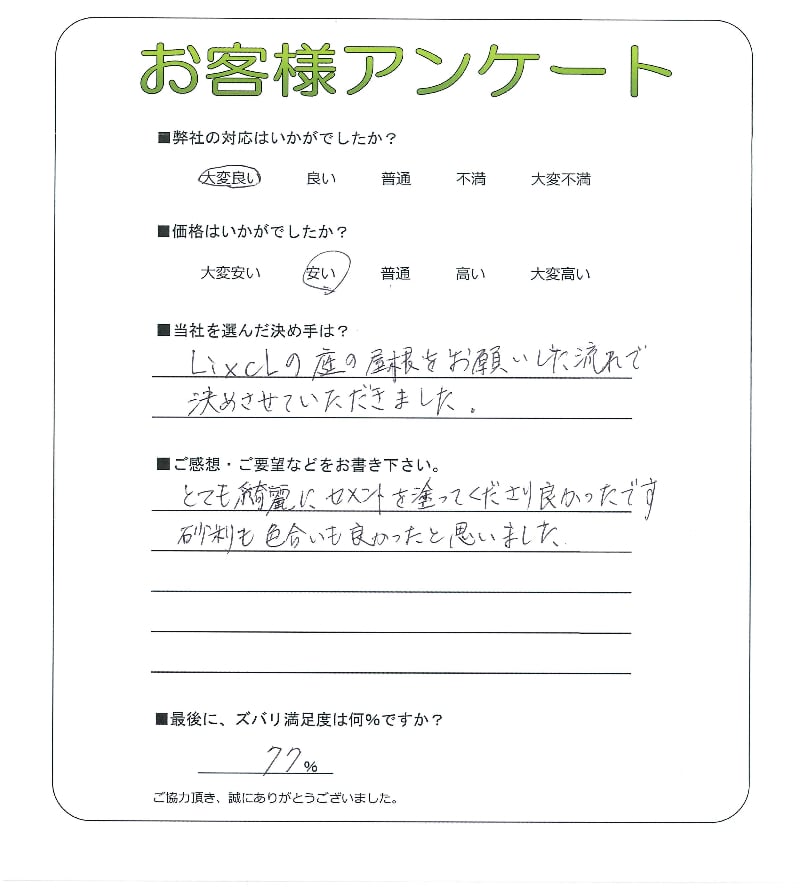 お客様アンケート
■弊社の対応はいかがでしたか？
大変良い 良い 普通 不満 大変不満
■価格はいかがでしたか？
大変安い 安い 普通 高い 大変高い
■当社を選んだ決め手は？
LixcLの庭の屋根をお願いした流れで
決めさせていただきました。
■ご感想・ご要望などをお書き下さい。
とても綺麗にセメントを塗ってくださり良かったです
砂利も色合いも良かったと思いました。
■最後に、ズバリ満足度は何%ですか？
77%
ご協力頂き、誠にありがとうございました。